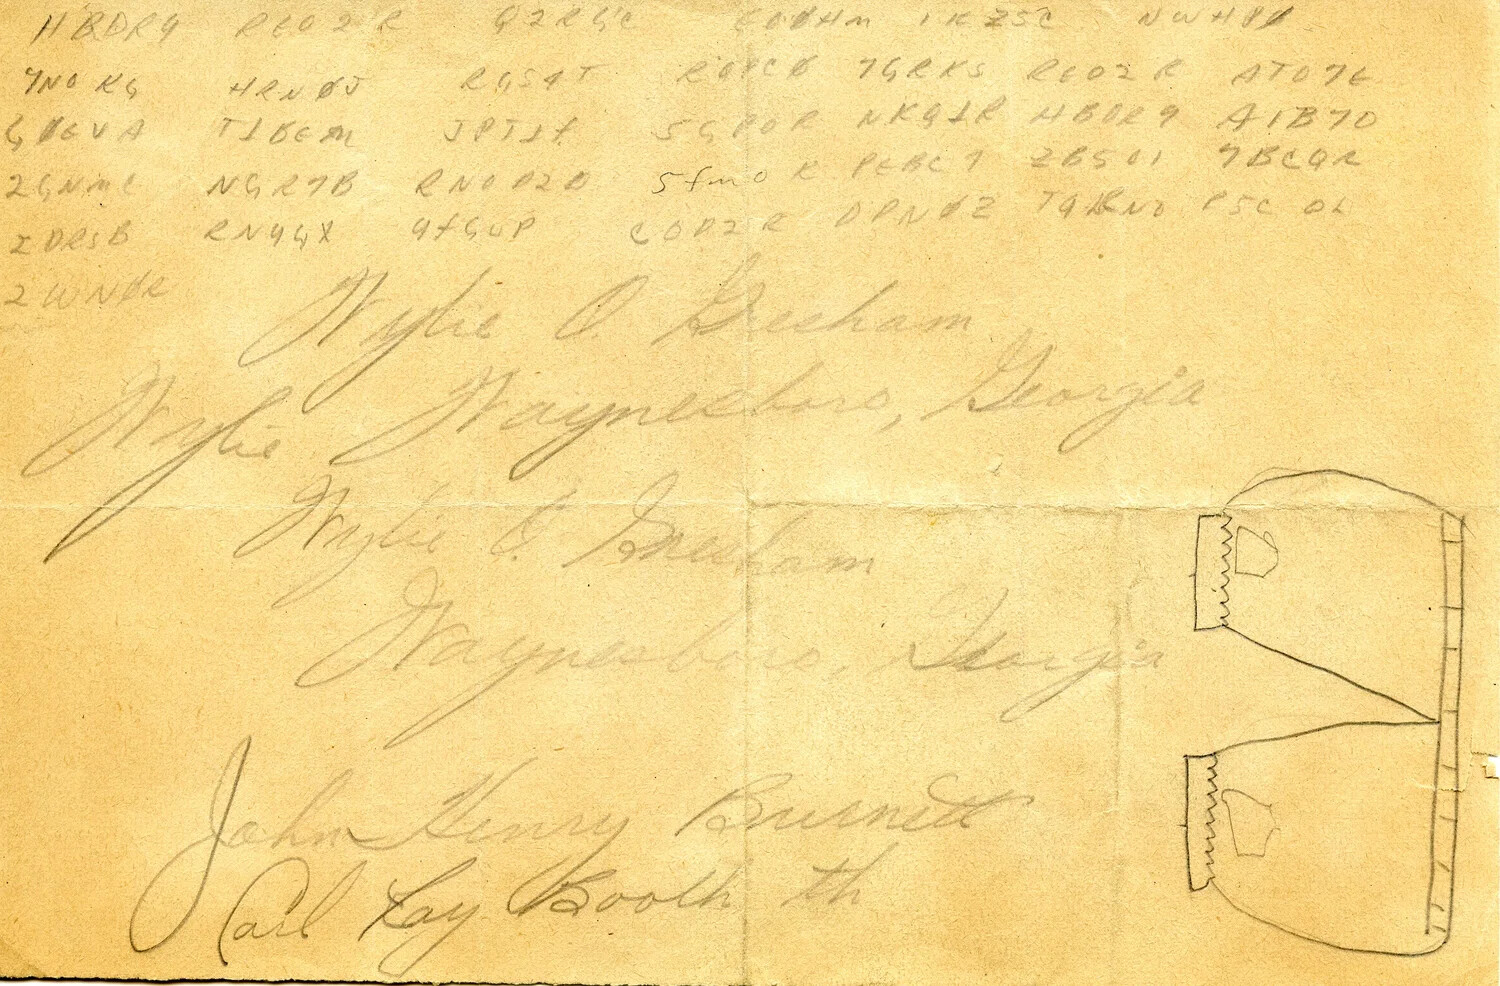 HBDR9 REO2R Q2RGC EODHM 1KZ5C NWHPØ
7NOKG HRNØJ RG54T ROPCØ 7GRKS REO2R ATO7E
GØEVA T1BEM JPT1f 5GPOR NKG1R HBDR9 A1B7O
2GNMC NGR7B RNOD2O 5fmOK PEBC7 2B5O1 7BCQR
ZDRSB RN9GX 9fGUP COD2R DPNØZ P5COL
2WNØR
Wylie O. Gresham
Wylie Waynesboro, Georgia
Wylie O. Gresham
Waynesboro, Georgia
John Henry Burnett
Carl Ray Booth th